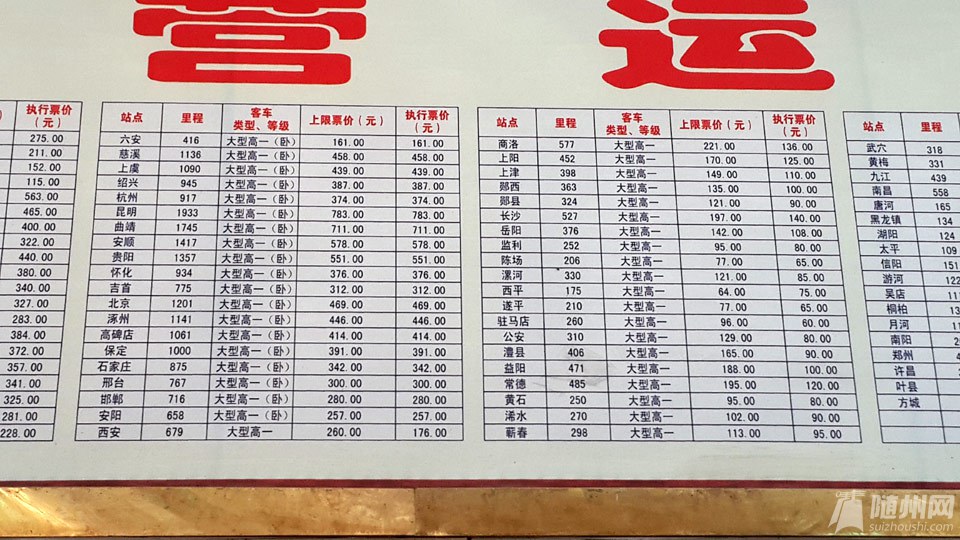 营 运
执行票价
（元）
275.00
211.00
152.00
115.00
563.00
465.00
400.00
322.00
440.00
380.00
340.00
327.00
283.00
384.00
372.00
357.00
341.00
325.00
281.00
228.00
站点 里程 客车类型、等级 上限票价（元） 执行票价（元）
六安 416 大型高一（卧） 161.00 161.00
慈溪 1136 大型高一（卧） 458.00 458.00
上虞 1090 大型高一（卧） 439.00 439.00
绍兴 945 大型高一（卧） 387.00 387.00
杭州 917 大型高一（卧） 374.00 374.00
昆明 1933 大型高一（卧） 783.00 783.00
曲靖 1745 大型高一（卧） 711.00 711.00
安顺 1417 大型高一（卧） 578.00 578.00
贵阳 1357 大型高一（卧） 551.00 551.00
怀化 934 大型高一（卧） 376.00 376.00
吉首 775 大型高一（卧） 312.00 312.00
北京 1201 大型高一（卧） 469.00 469.00
涿州 1141 大型高一（卧） 446.00 446.00
高碑店 1061 大型高一（卧） 414.00 414.00
保定 1000 大型高一（卧） 391.00 391.00
石家庄 875 大型高一（卧） 342.00 342.00
邢台 767 大型高一（卧） 300.00 300.00
邯郸 716 大型高一（卧） 280.00 280.00
安阳 658 大型高一（卧） 257.00 257.00
西安 679 大型高一 260.00 176.00
站点 里程 客车类型、等级 上限票价（元） 执行票价（元）
商洛 577 大型高一 221.00 136.00
上阳 452 大型高一 170.00 125.00
上津 398 大型高一 149.00 110.00
郧西 363 大型高一 135.00 100.00
郧县 324 大型高一 121.00 90.00
长沙 527 大型高一 197.00 140.00
岳阳 376 大型高一 142.00 108.00
监利 252 大型高一 95.00 80.00
陈场 206 大型高一 77.00 65.00
漯河 330 大型高一 121.00 85.00
西平 175 大型高一 64.00 75.00
遂平 210 大型高一 77.00 65.00
驻马店 260 大型高一 96.00 60.00
公安 310 大型高一 129.00 80.00
澧县 406 大型高一 165.00 90.00
益阳 471 大型高一 188.00 100.00
常德 485 大型高一 195.00 120.00
黄石 250 大型高一 95.00 80.00
浠水 270 大型高一 102.00 90.00
蕲春 298 大型高一 113.00 95.00
站点 里程
武穴 318
黄梅 331
九江 439
南昌 558
唐河 165
黑龙镇 134
湖阳 124
太平 109
信阳 151
游河
吴店
桐柏
月河
南阳
郑州
许昌
叶县
方城
随州网
suizhoushi.com